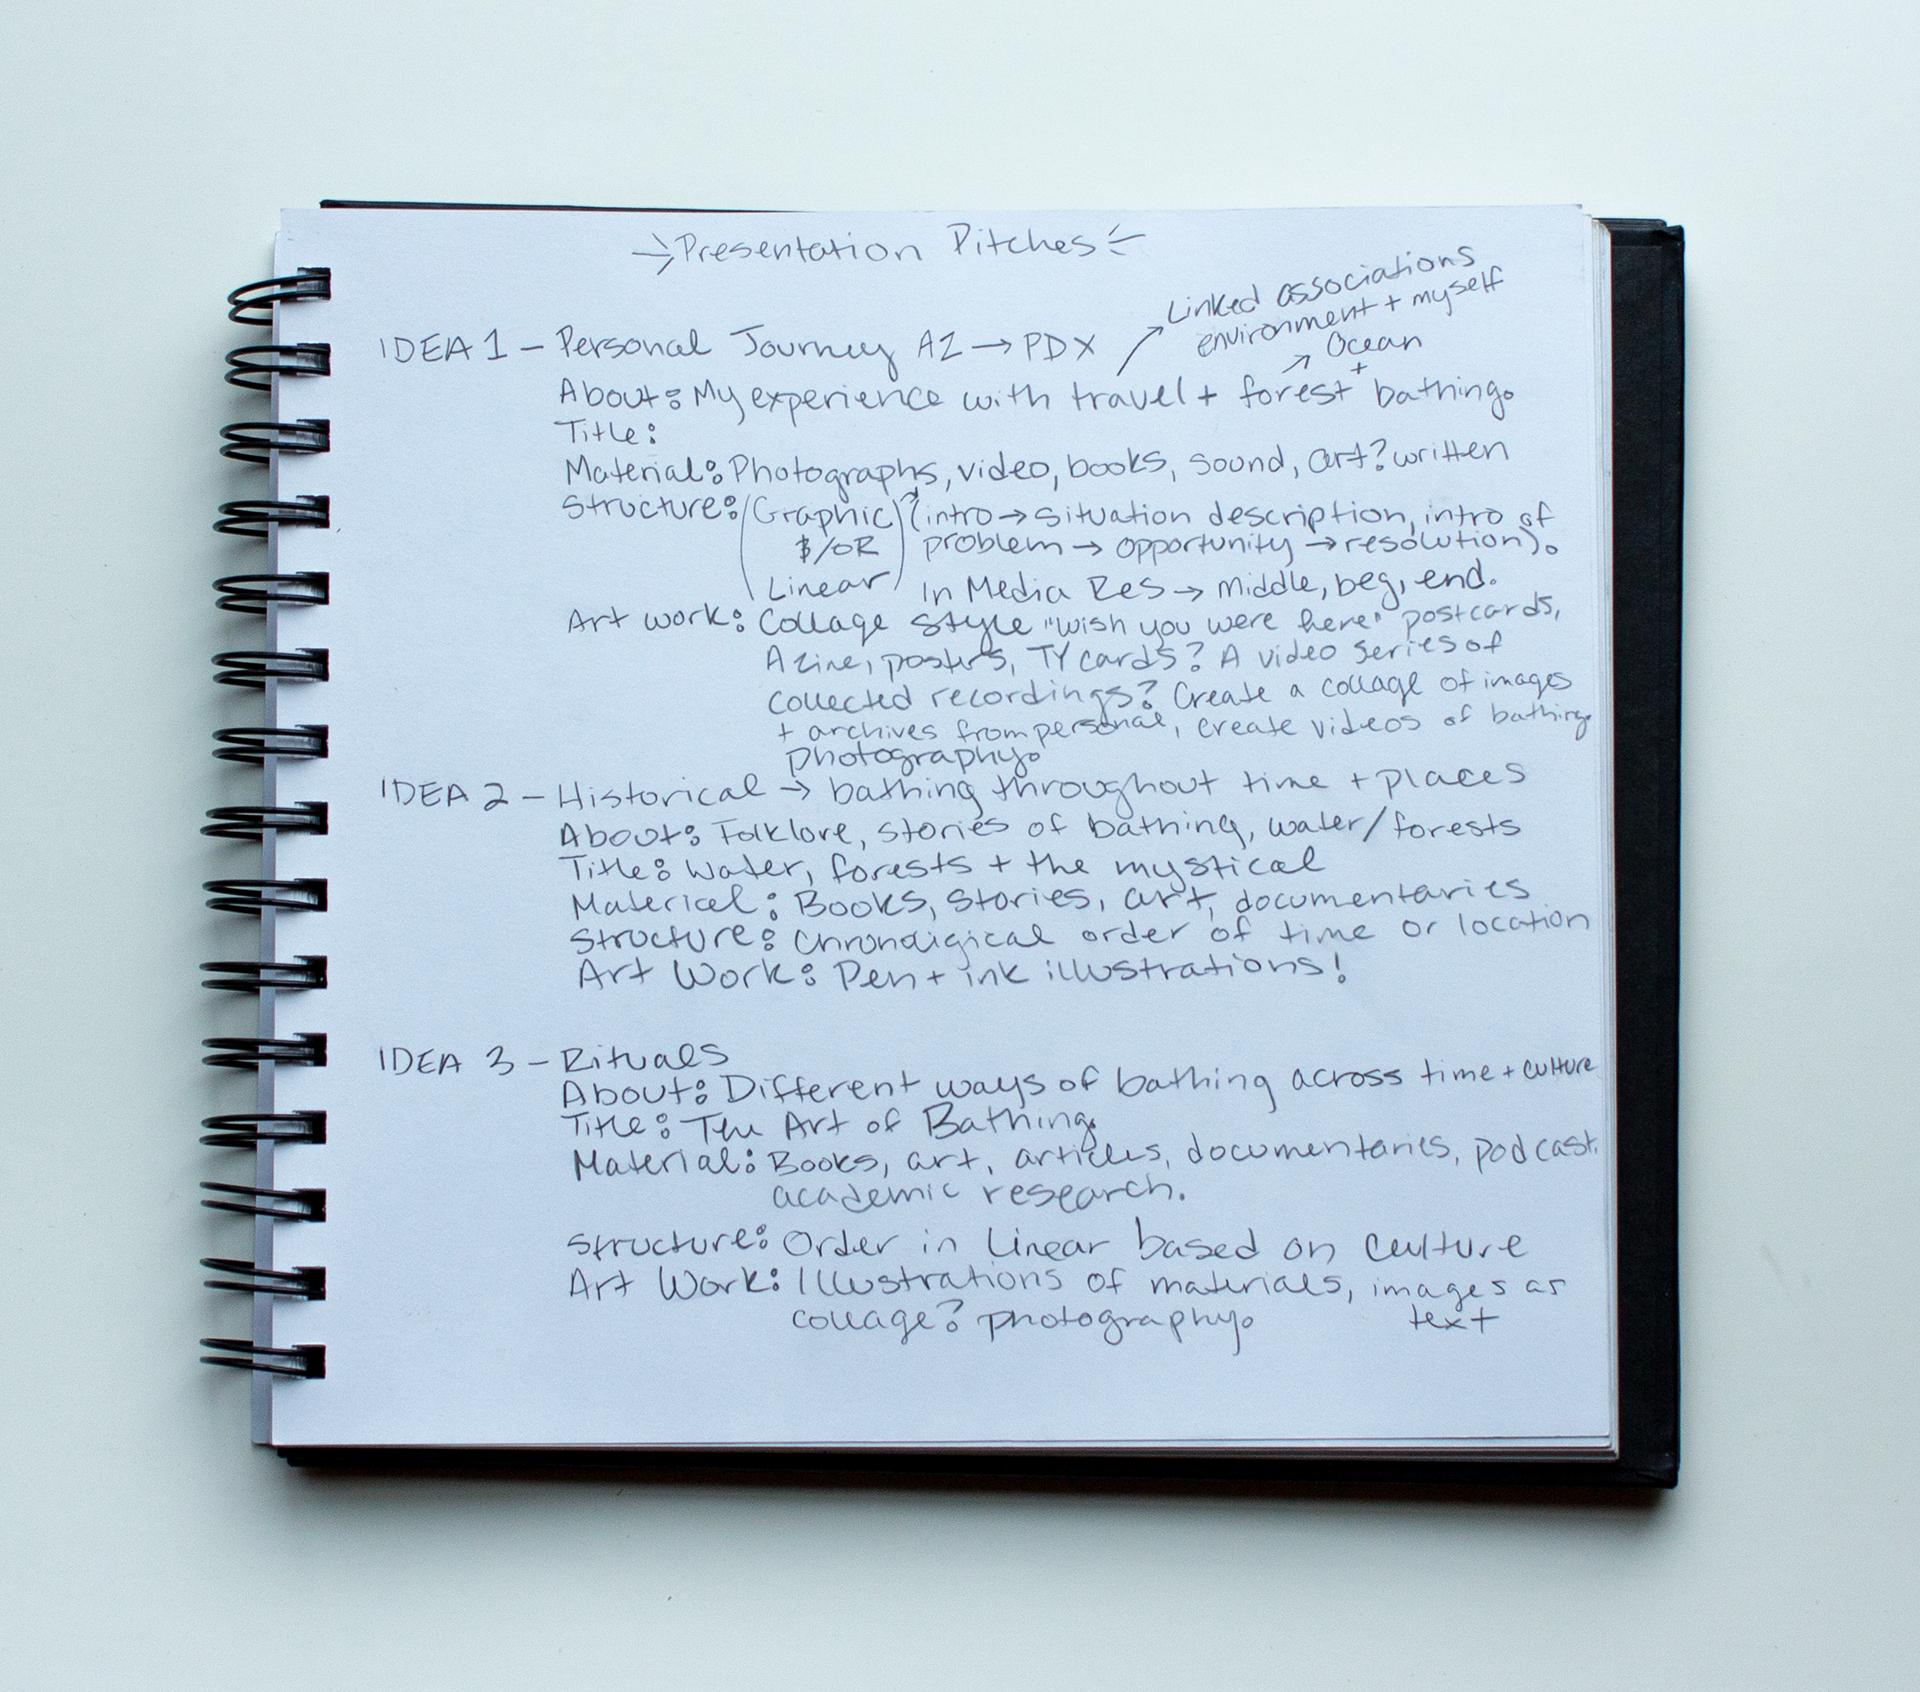 Presentation Pitches
Linked associations
environment + myself
IDEA 1 - Personal Journey AZ → PDX
Ocean
+
About: My experience with travel + forest bathing.
Title:
Material: Photographs, video, books, sound, art? written
Structure: (Graphic)? (intro → situation description, intro of
$/OR problem → opportunity → resolution).
Linear In Media Res → middle, beg, end.
Art work: Collage style "wish you were here" postcards,
A zine, posters, TY cards? A video series of
collected recordings? Create a collage of images
+ archives from personal, create videos of bathing.
photography.
IDEA 2 - Historical → bathing throughout time + places
About: Folklore, stories of bathing, water/forests
Title: Water, forests + the mystical
Material: Books, stories, art, documentaries
Structure: Chronoligical order of time or location
Art Work: Pen + ink illustrations!
IDEA 3 - Rituals
About: Different ways of bathing across time + culture
Title: The Art of Bathing.
Material: Books, art, articles, documentaries, podcast.
academic research.
Structure: Order in Linear based on culture
Art Work: Illustrations of materials, images as
collage? photography. text